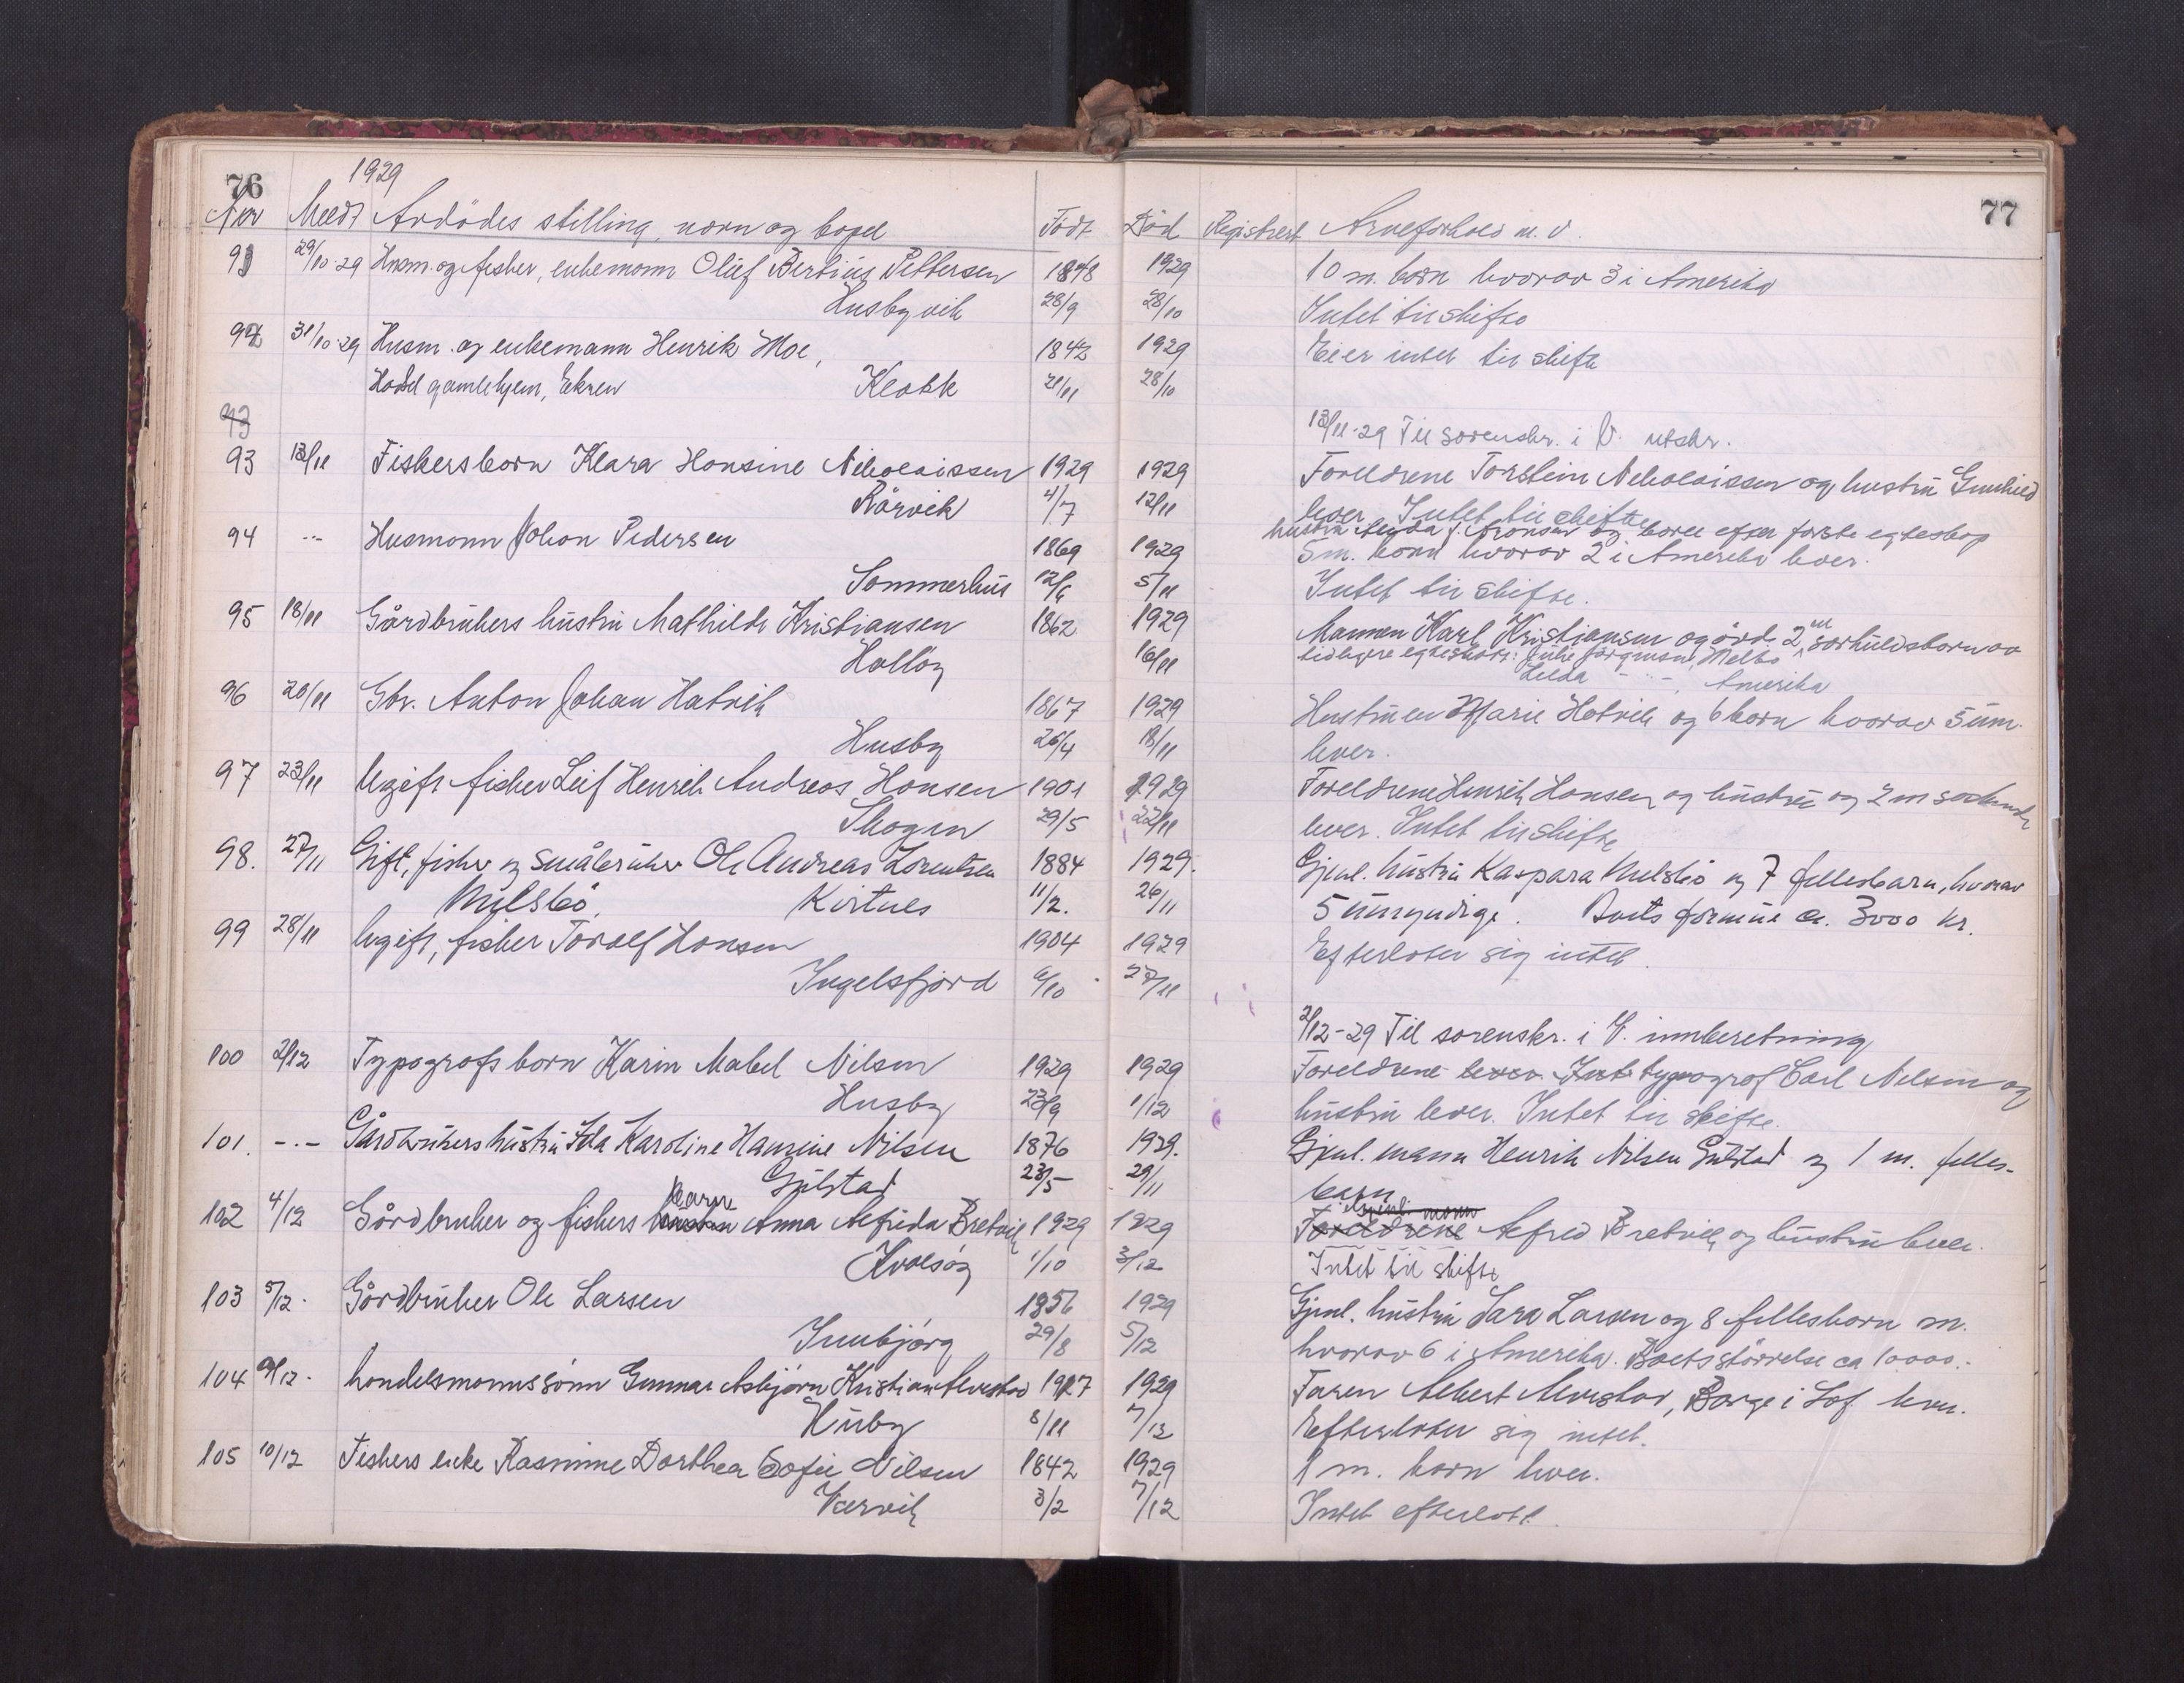 76
1929
Nr Meldt Avdödes stilling, navn og bopel Födt Död Registrert Arveforhold m. v.
77
91 29/10-29 Husm. og fisker, enkemann Oluf Bertius Pettersen 1848 1929 10 m. barn hvorav 3 i Amerika
Husbyvik 28/9 28/10 Intet til skifte
92 31/10-29 Husm. og enkemann Henrik Moe, 1842 1929 Eier intet til skifte
Hadsel gamlehjem, Ekren Kleokk 21/11 28/10
93
13/11-29 Til sorenskr. i V. utskr.
93 13/11 Fiskersbarn Klara Hansine Nikolaissen 1929 1929 Foreldrene Torstein Nikolaissen og hustru Gunhild
Rårvik 4/7 12/11 lever. Intet til skifte
94 -"- Husmann Johan Pedersen 1869 1929 hustru f. Aronsen og barn efter første egteskap
5 m. barn hvorav 2 i Amerika lever.
Sommerhus 12/6 5/11 Intet til skifte.
95 18/11 Gårdbrukers hustru Mathilde Kristiansen 1862 1929 Mannen Karl Kristiansen og avdi. 2 m særkuldsbarn av
Hallöy 16/11 tidligere egteskap: Julie Jörgensen, Melbo
Lilda -"-, Amerika
96 20/11 Gbr. Anton Johan Hatvik 1867 1929 Hustruen Marie Hatvik og 6 barn hvorav 5 um.
Husby 26/4 18/11 lever.
97 23/11 Ugift fisker Leif Henrik Andreas Hansen 1901 1929 Foreldrene Henrik Hansen og hustru og 2 m søskende
Skogen 29/5 22/11 lever. Intet til skifte
98. 27/11 Gift, fisker og småbruker Ole Andreas Lorentsen 1884 1929. Gjenl. hustru Kaspara Mulsbö og 7 fellesbarn, hvorav
Mulsbö, Kirtnes 11/2. 26/11 5 umyndige. Boets formue ca. 3000 kr.
99 28/11 Ugift, fisker Toralf Hansen 1904 1929 Efterlater sig intet
Ingelsfjord 6/10 27/11
2/12-29 Til sorenskr. i V. innberetning
100 2/12 Typografs barn Karin Mabel Nilsen 1929 1929 Foreldrene lever. Intet typograf Carl Nilsen og
Husby 23/9 1/12 hustru lever. Intet til skifte.
101. -"- Gårdbrukers hustru Ida Karoline Hansine Nilsen 1876 1929. Gjenl. mann Henrik Nilsen Gulstad og 1 m. felles-
Gulstad 23/5 29/11 barn
102 4/12 Gårdbruker og fiskers hustru barn Anna Alfrida Bretvik 1929 1929 Foreldrene gjenl. mann Alfred Bretvik og hustru lever.
Kvalsöy 1/10 3/12 Intet til skifte
103 5/12. Gårdbruker Ole Larsen 1856 1929 Gjenl. hustru Sara Larsen og 8 fellesbarn m.
Innbjörg 29/8 5/12 hvorav 6 i Amerika. Boets störrelse ca 10000.-
104 9/12. Handelsmannssönn Gunnar Asbjörn Kristian Alvestad 1927 1929 Faren Albert Alvestad, Barge i Lof. lever.
Husby 8/11 7/12 Efterlater sig intet.
105 10/12 Fiskers enke Rasmine Dorthea Sofie Nilsen 1842 1929 1 m. barn lever.
Kervik 3/2 7/12 Intet efterlatt.